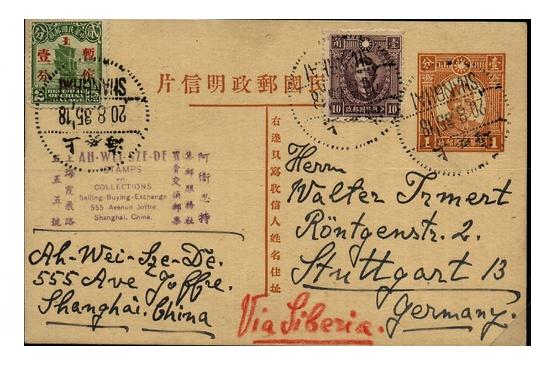 民國郵政明信片
暫作
壹分
SHANGHAI
20.8.35.18
上海
10
SHANGHAI
20.8.35.18
1
1
AH-WEI-SZE-DE
STAMPS
COLLECTIONS
Selling-Buying-Exchange
555 Avenue Joffre
Shanghai, China.
阿衛思特
集郵服務社
買賣交換郵集
上海霞飛路
五五五號
右邊只寫收信人姓名住址
Herrn
Walter Trmert
Röntgenstr. 2.
Stuttgart 13
Germany.
Ah-Wei-Sze-De.
555 Ave Joffre.
Shanghai. China
Via Siberia.